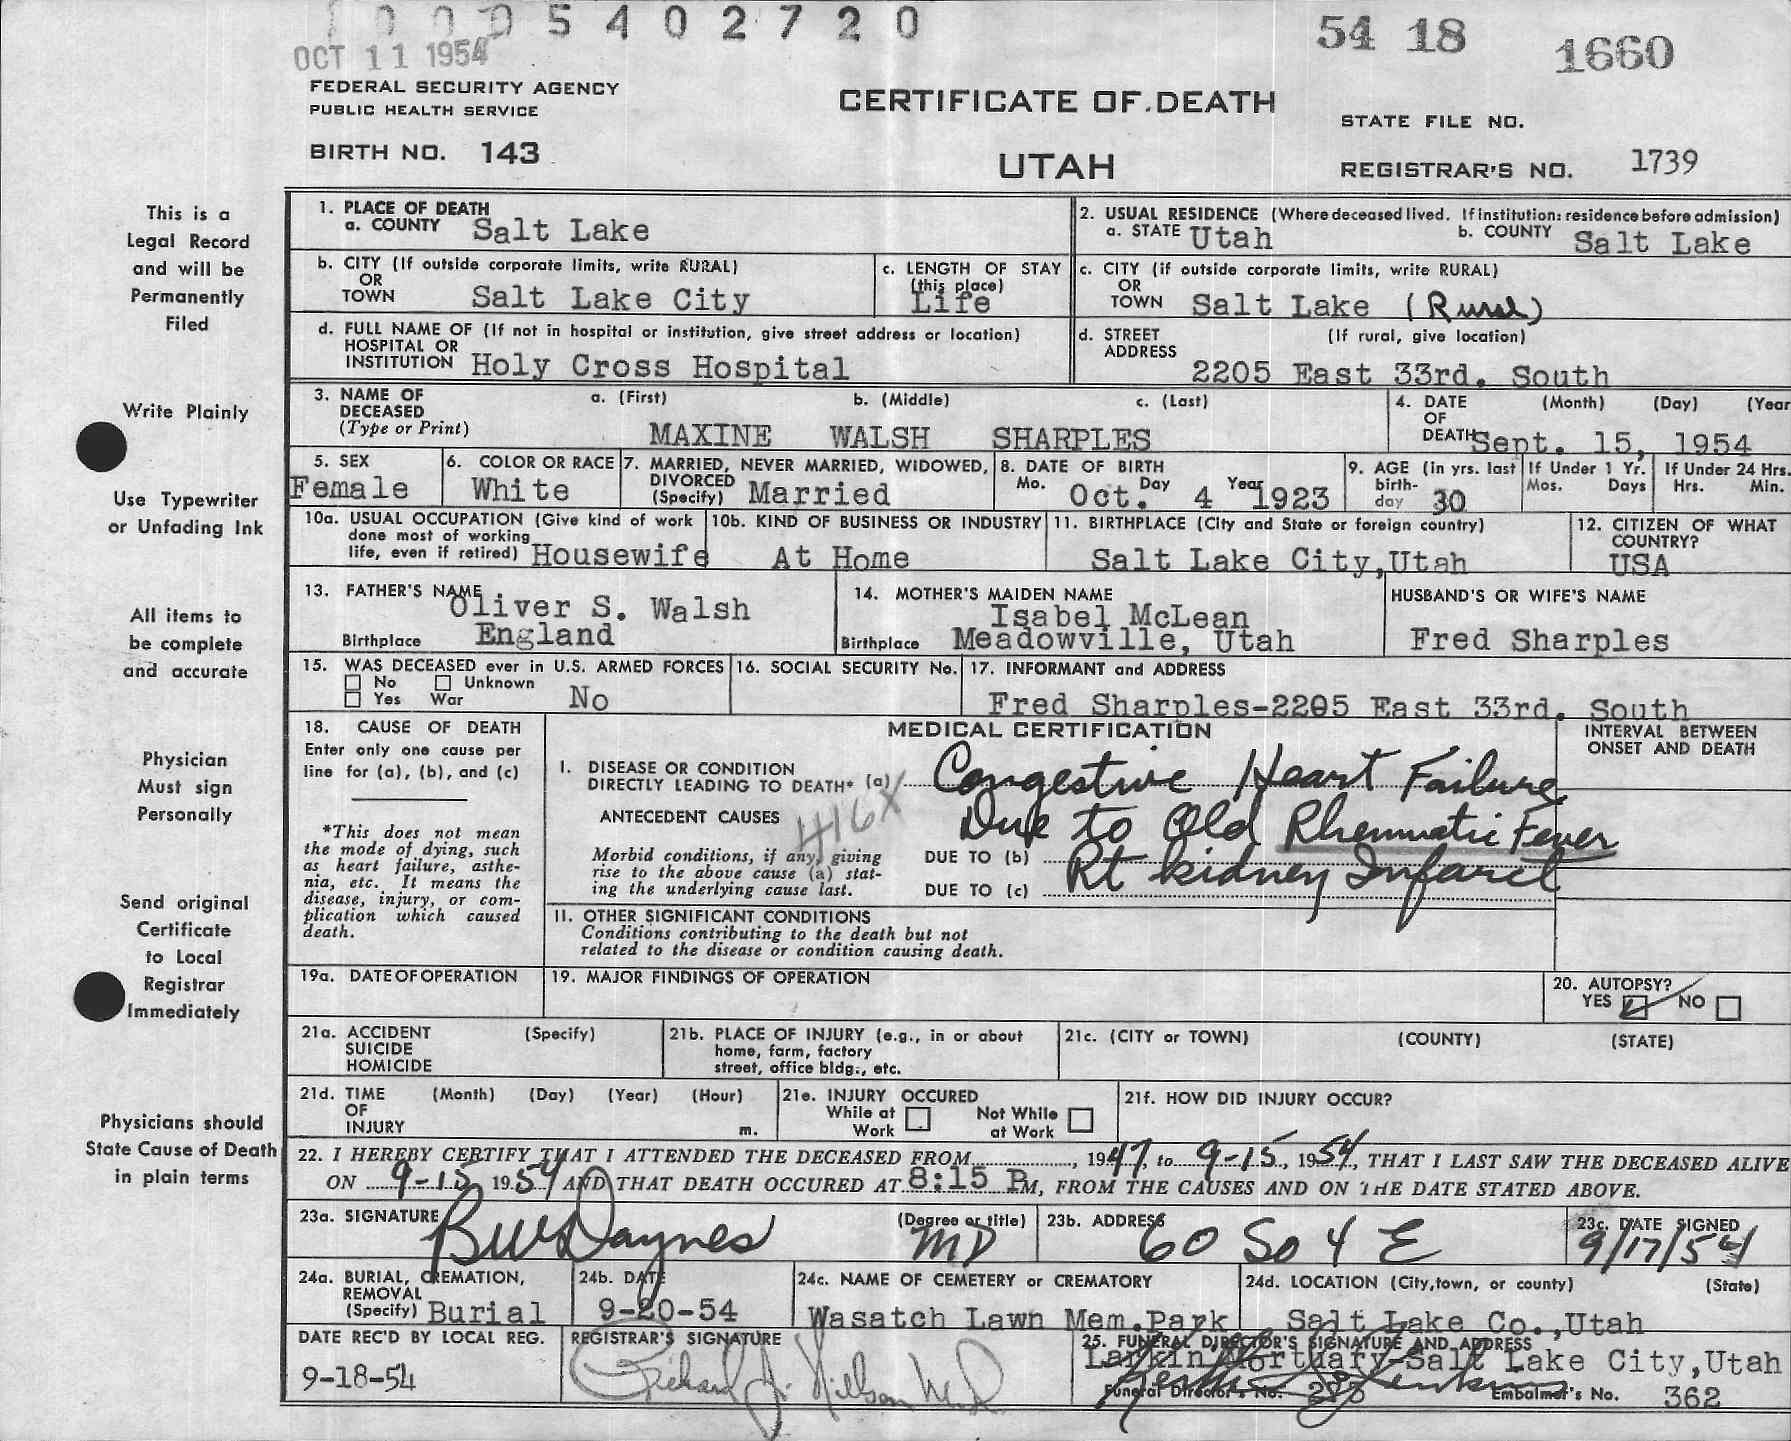 0005402720
OCT 11 1954
54 18 1660
FEDERAL SECURITY AGENCY
PUBLIC HEALTH SERVICE
BIRTH NO. 143
CERTIFICATE OF DEATH
UTAH
STATE FILE NO.
REGISTRAR'S NO. 1739
This is a
Legal Record
and will be
Permanently
Filed
Write Plainly
Use Typewriter
or Unfading Ink
All items to
be complete
and accurate
Physician
Must sign
Personally
Send original
Certificate
to Local
Registrar
Immediately
Physicians should
State Cause of Death
in plain terms
1. PLACE OF DEATH
a. COUNTY Salt Lake
2. USUAL RESIDENCE (Where deceased lived. If institution: residence before admission)
a. STATE Utah b. COUNTY Salt Lake
b. CITY (If outside corporate limits, write RURAL)
OR
TOWN Salt Lake City
c. LENGTH OF STAY
(this place)
Life
c. CITY (if outside corporate limits, write RURAL)
OR
TOWN Salt Lake (Rural)
d. FULL NAME OF (If not in hospital or institution, give street address or location)
HOSPITAL OR
INSTITUTION Holy Cross Hospital
d. STREET (If rural, give location)
ADDRESS
2205 East 33rd. South
3. NAME OF a. (First) b. (Middle) c. (Last)
DECEASED
(Type or Print) MAXINE WALSH SHARPLES
4. DATE (Month) (Day) (Year
OF
DEATH Sept. 15, 1954
5. SEX
Female
6. COLOR OR RACE
White
7. MARRIED, NEVER MARRIED, WIDOWED,
DIVORCED
(Specify) Married
8. DATE OF BIRTH
Mo. Day Year
Oct. 4 1923
9. AGE (in yrs. last
birth-
day 30
If Under 1 Yr.
Mos. Days
If Under 24 Hrs.
Hrs. Min.
10a. USUAL OCCUPATION (Give kind of work
done most of working
life, even if retired) Housewife
10b. KIND OF BUSINESS OR INDUSTRY
At Home
11. BIRTHPLACE (City and State or foreign country)
Salt Lake City,Utah
12. CITIZEN OF WHAT
COUNTRY?
USA
13. FATHER'S NAME
Oliver S. Walsh
Birthplace England
14. MOTHER'S MAIDEN NAME
Isabel McLean
Birthplace Meadowville, Utah
HUSBAND'S OR WIFE'S NAME
Fred Sharples
15. WAS DECEASED ever in U.S. ARMED FORCES
No Unknown
Yes War No
16. SOCIAL SECURITY No.
17. INFORMANT and ADDRESS
Fred Sharples-2205 East 33rd. South
18. CAUSE OF DEATH
Enter only one cause per
line for (a), (b), and (c)
*This does not mean
the mode of dying, such
as heart failure, asthe-
nia, etc. It means the
disease, injury, or com-
plication which caused
death.
MEDICAL CERTIFICATION
INTERVAL BETWEEN
ONSET AND DEATH
I. DISEASE OR CONDITION
DIRECTLY LEADING TO DEATH* (a) Congestive Heart Failure
ANTECEDENT CAUSES 416X Due to Old Rheumatic Fever
Morbid conditions, if any, giving
rise to the above cause (a) stat-
ing the underlying cause last.
DUE TO (b) Rt kidney Infarct
DUE TO (c)
II. OTHER SIGNIFICANT CONDITIONS
Conditions contributing to the death but not
related to the disease or condition causing death.
19a. DATE OF OPERATION
19. MAJOR FINDINGS OF OPERATION
20. AUTOPSY?
YES NO
21a. ACCIDENT (Specify)
SUICIDE
HOMICIDE
21b. PLACE OF INJURY (e.g., in or about
home, farm, factory
street, office bldg., etc.
21c. (CITY or TOWN) (COUNTY) (STATE)
21d. TIME (Month) (Day) (Year) (Hour)
OF
INJURY m.
21e. INJURY OCCURED
While at Work Not While at Work
21f. HOW DID INJURY OCCUR?
22. I HEREBY CERTIFY THAT I ATTENDED THE DECEASED FROM, 1947, to 9-15, 1954, THAT I LAST SAW THE DECEASED ALIVE
ON 9-15 1954 AND THAT DEATH OCCURED AT 8:15 P.M, FROM THE CAUSES AND ON THE DATE STATED ABOVE.
23a. SIGNATURE (Degree or title)
BW Daynes MD
23b. ADDRESS
60 So 4 E
23c. DATE SIGNED
9/17/54
24a. BURIAL, CREMATION,
REMOVAL
(Specify) Burial
24b. DATE
9-20-54
24c. NAME OF CEMETERY or CREMATORY
Wasatch Lawn Mem.Park
24d. LOCATION (City,town, or county) (State)
Salt Lake Co.,Utah
DATE REC'D BY LOCAL REG.
9-18-54
REGISTRAR'S SIGNATURE
Richard J. Nillson M.D.
25. FUNERAL DIRECTOR'S SIGNATURE AND ADDRESS
Larkin Mortuary-Salt Lake City,Utah
Funeral Director's No. Embalmer's No. 362